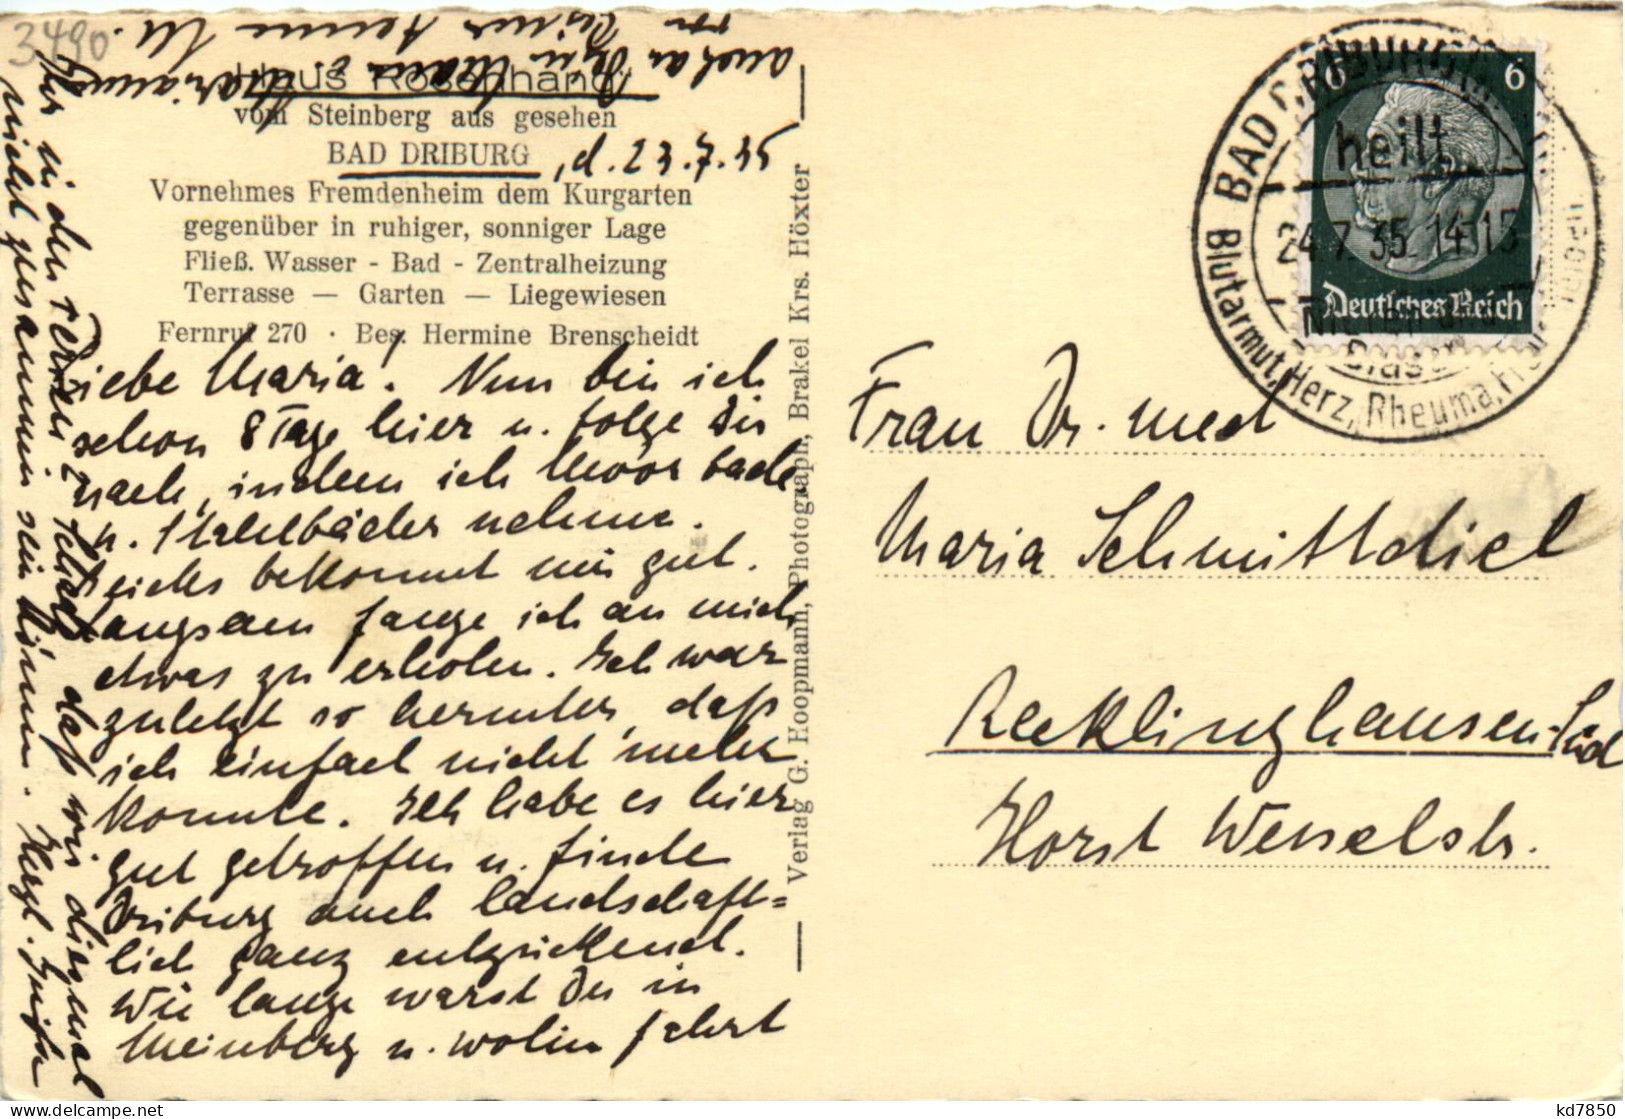 3490
Haus Rosenhang
vom Steinberg aus gesehen
BAD DRIBURG, d. 23.7.35
Vornehmes Fremdenheim dem Kurgarten
gegenüber in ruhiger, sonniger Lage
Fließ. Wasser - Bad - Zentralheizung
Terrasse — Garten — Liegewiesen
Fernruf 270 · Bes. Hermine Brenscheidt
Liebe Maria! Nun bin ich
schon 8 Tage hier u. folge Dir
nach, indem ich Moorbäder
u. Stahlbäder nehme.
Beides bekommt mir gut.
Langsam fange ich an mich
etwas zu erholen. Ich war
zuletzt so herunter, daß
ich einfach nicht mehr
konnte. Ich habe es hier
gut getroffen u. finde
Driburg auch landschaft=
lich ganz entzückend.
Wie lange warst Du in
Meinberg u. wohin fahrt
Ihr in den Ferien? Schade daß wir diesmal
nicht zusammen sein können. Herzl. Grüße
auch an
von Deiner Änne M.
Verlag G. Koopmann, Photograph, Brakel Krs. Höxter
BAD DRIBURG
heilt
24.7.35.14-15
Nieren
Blutarmut, Herz, Rheuma,
6
6
Deutsches Reich
Frau Dr. med
Maria Schmittdiel
Recklinghausen-Süd
Horst Wesselstr.
kd7850